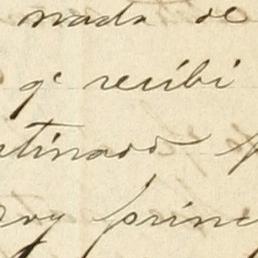 nada de
qe recibi
tinado
oy princ